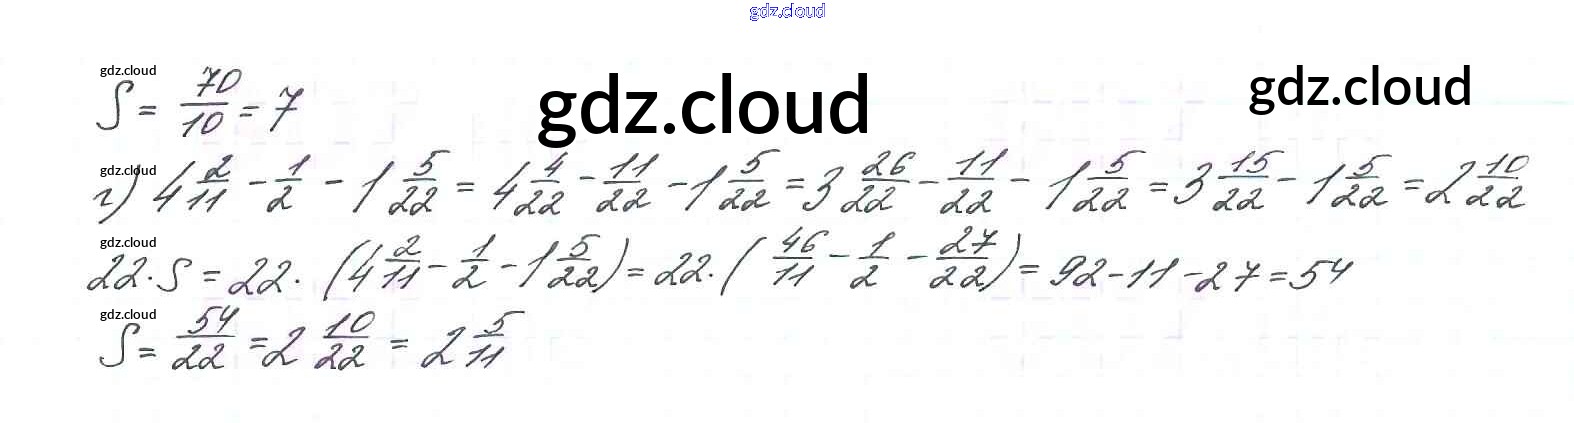 gdz.cloud
gdz.cloud
S = 70/10 = 7
gdz.cloud
gdz.cloud
gdz.cloud
г) 4 2/11 - 1/2 - 1 5/22 = 4 4/22 - 11/22 - 1 5/22 = 3 26/22 - 11/22 - 1 5/22 = 3 15/22 - 1 5/22 = 2 10/22
gdz.cloud
22·S = 22·(4 2/11 - 1/2 - 1 5/22) = 22·(46/11 - 1/2 - 27/22) = 92 - 11 - 27 = 54
gdz.cloud
S = 54/22 = 2 10/22 = 2 5/11